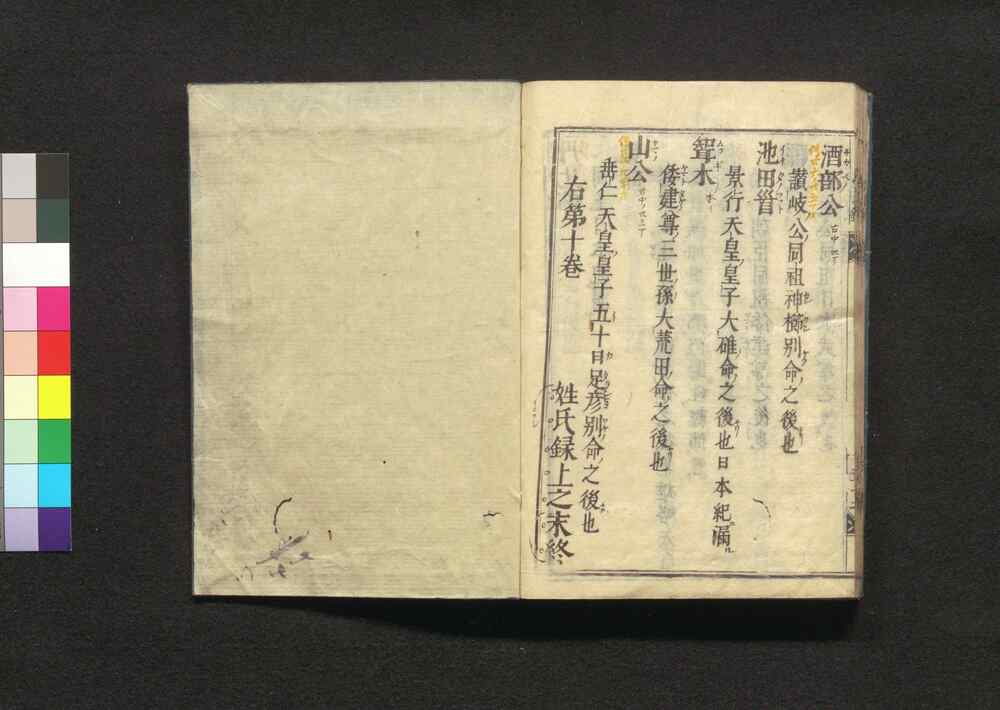 酒部公
讃岐公同祖神櫛別命之後也
池田首
景行天皇皇子大碓命之後也日本紀漏
聟木
倭建尊三世孫大荒田命之後也
山公
垂仁天皇皇子五十日足彦別命之後也
右第十巻
姓氏録上之末終